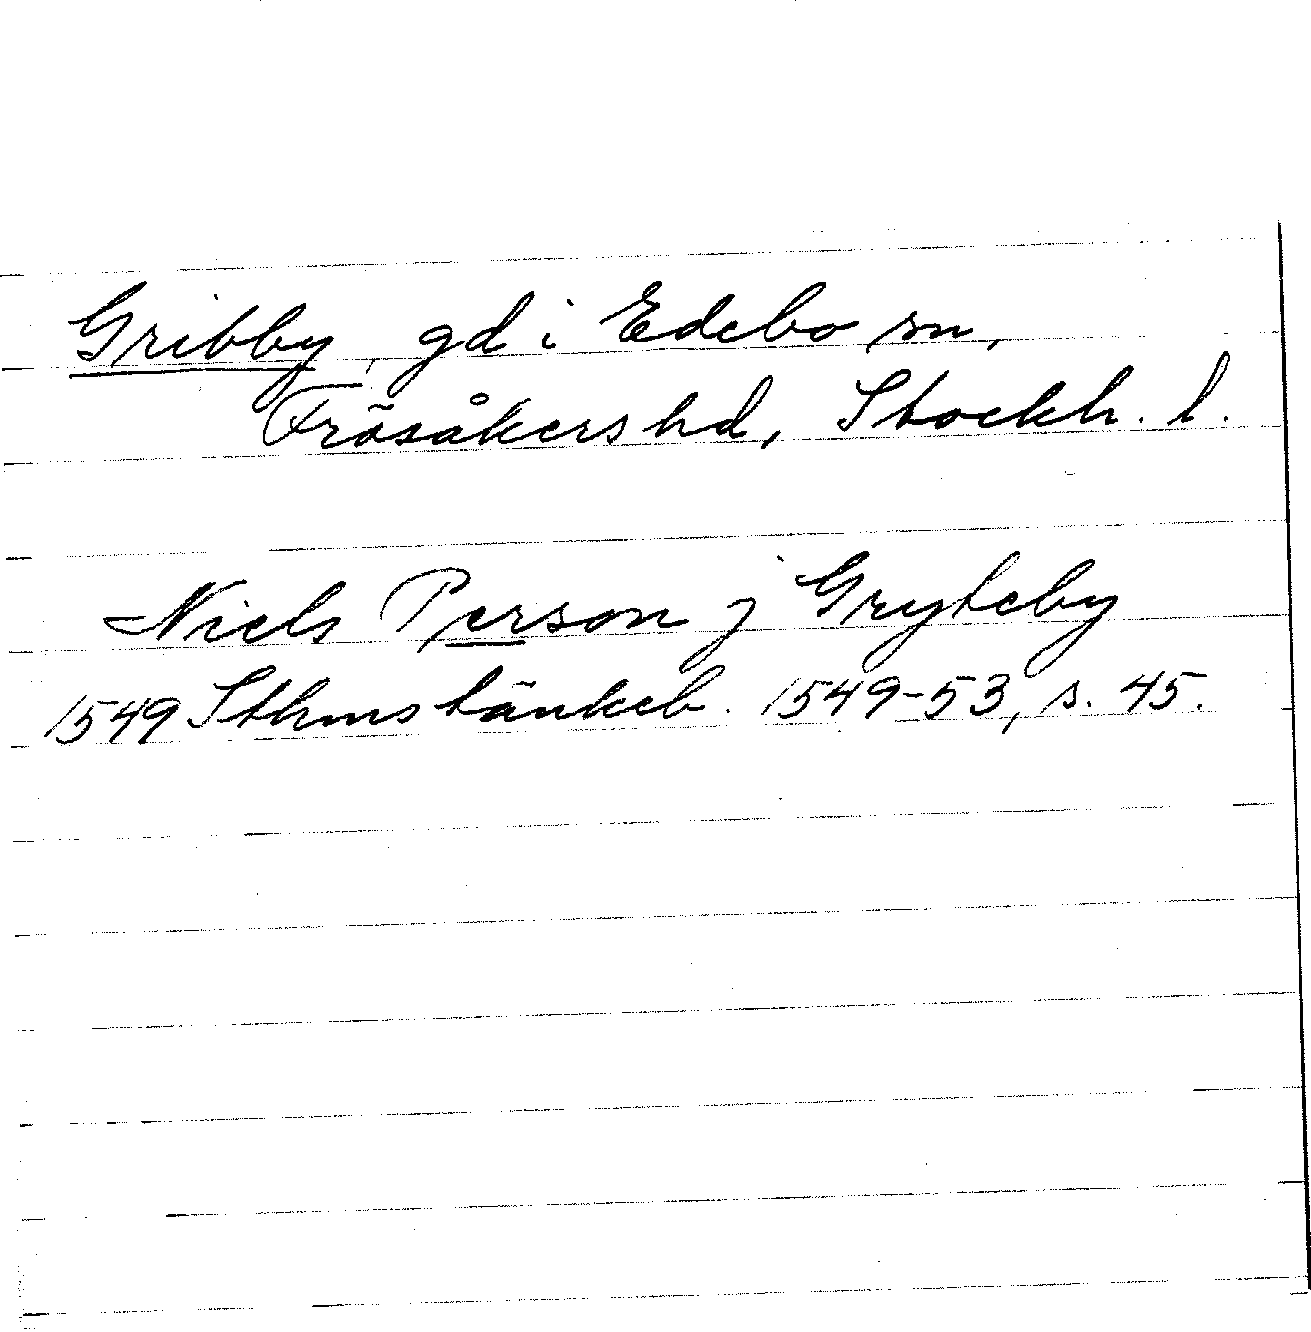 Gribby, gd i Edebo sn,
Frösåkers hd, Stockh. l.
Niels Person j Gryteby
1549 Sthms tänkeb. 1549-53, s. 45.